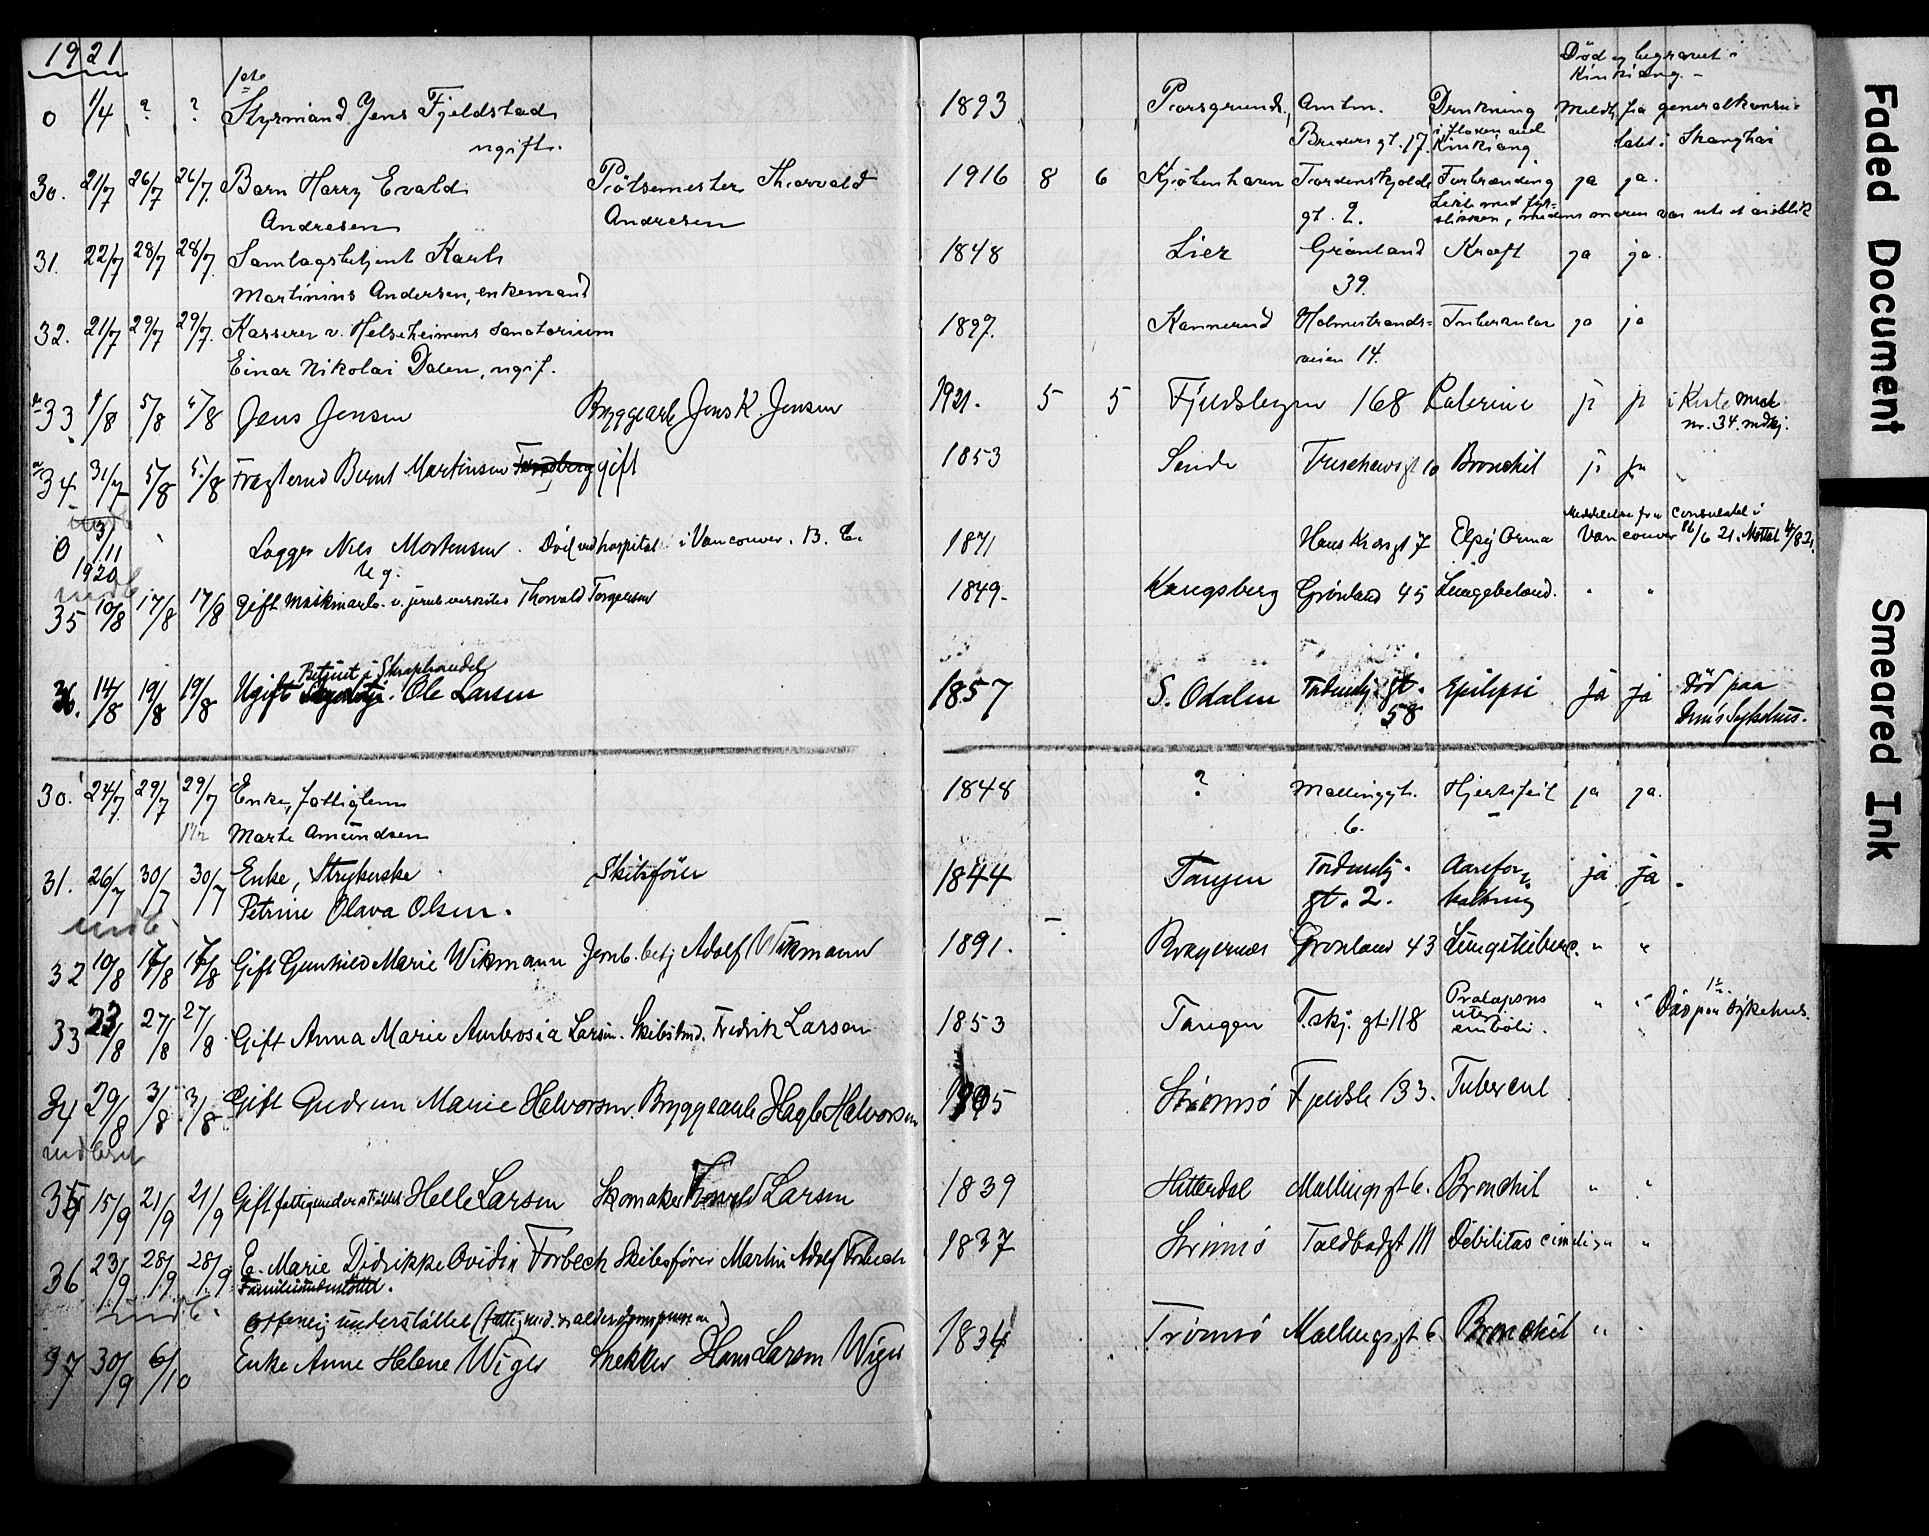 1921
0 1/4 ? ? 1ste Styrmand Jens Fjeldstad 1893 Porsgrund, Amtm. Drukning Meldt fra generalkonsu-
ugift. Breders gt. 17. i floden ved Kinkiang latet i Shanghai
Død og begravet i Kinkiang.
30. 21/7 26/7 26/7. Barn Harry Evald Thorvald 1916 8 6 Kjøbenhavn Tordenskjolds Forbrænding ja ja.
Andresen Andresen gt. 2. Lekte med fyr-
stikker, medens moren var ute et øieblik
31. 22/7 28/7 28/7. Samlagsbetjent Karl 1848 Lier Grønland Kræft ja ja.
Martinius Andersen, enkemand 39.
32. 21/7 29/7 29/7. Kasserer v. Helseheimens Sanatorium 1897. Holmestrands- Tuberkulose ja ja
Einar Nikolai Dalen, ugif. veien 14.
33 1/8 5/8 5/8 Jens Jensen Bryggearb Jens K. Jensen 1921. 5 5 Fjeldsbyen 168 ja ja i Kiste med
nr. 34.
34 31/7 5/8 5/8 Bernt Martinsen gift 1853 Sande Bronchit ja ja
0 3/11 1920 Nils Mortensen. Død ved hospital i Vancouver. B. C. 1871 Hans Kiærsgt 7 Meddelelse fra Consulatet i
Ug. Vancouver 16/6 21. Mottat 4/8 21.
indb.
35 10/8 17/8 17/8 Gift Maskinarb. v. jernverkstes Thorvald Torgersen 1849. Kongsberg Grønland 45 " "
36. 14/8 19/8 19/8 Betjent i Skraphandel
Ugift Ole Larsen 1857 S. Odalen gt. Epilepsi ja ja Død paa
58 Sykehus.
30. 24/7 29/7 29/7 Enke, fattiglem 1848 ? Mallinggt. Hjertefeil ja ja.
Marte Amundsen 6.
31. 26/7 30/7 30/7 Enke, Strykerske Skibsfører 1844 Tangen Aarefor- ja ja.
Petrine Olava Olsen. gt. 2. kalkning
indb.
32 10/8 17/8 17/8 Gift Gunhild Marie Wikmann Jernb. betj Adolf Wikmann 1891. Bragernes Grønland 43 Lungetuberc. " "
33 23/8 27/8 27/8 Gift Anna Marie Ambrosia Larsen. Skibstmd. Fredrik Larsen 1853 Tangen T.skj. gt. 118 Prolapsus
uteri
emboli. " " Død paa Sykehus.
34 29/8 3/8 3/8 Gift Gudrun Marie Halvorsen. Bryggearb Halvorsen Strømsø Fjeldsb 133. Tubercul
indberet
35 15/9 21/9 21/9 Gift fattigunderstøttet Helle Larsen Skomaker Larsen 1839 Hitterdal Mallingsgt 6. Bronchit " "
36 23/9 28/9 28/9 E. Marie Didrikke Ovidia Forbech Skibsfører Martin Adolf Forbech 1837 Strømsø Toldbodgt 111 Debilitas " "
indb.
Offentlig understøttet
37 30/9 6/10 Enke Anne Helene Wiger Snekker Hans Larsen Wiger 1834 Tromsø Mallingsgt 6 Bronchit " "
Faded Document
Smeared Ink